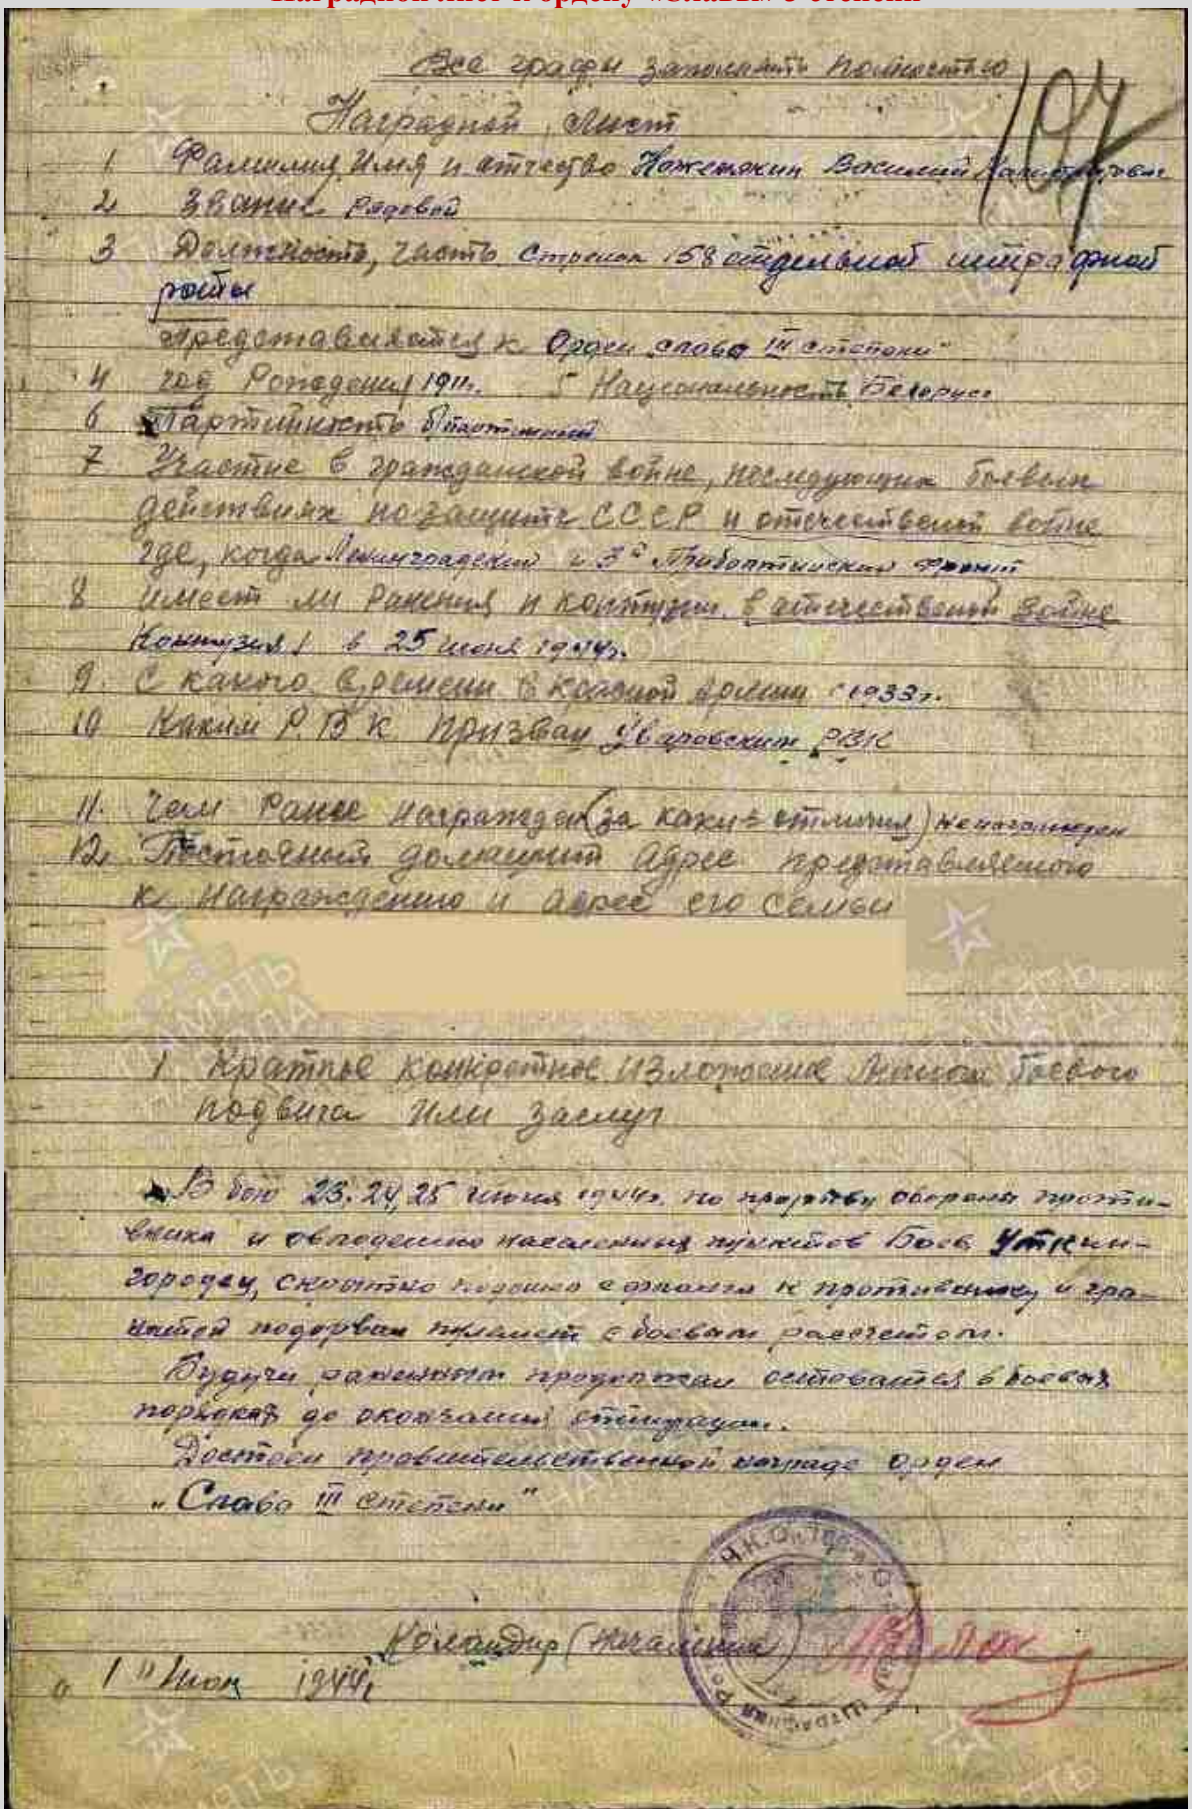 Наградной лист к ордену «Славы» 3 степени
Все графы заполнять полностью
107
Наградной лист
1 Фамилия, Имя и отчество Ножемякин Василий
2 Звание Рядовой
3 Должность, часть Стрелок 158 отдельной штрафной
роты
Представляется к Орден слава III степени"
4 год Рождения 1911г. 5 Национальность Белорус
6 Партийность б/партийный
7 Участие в гражданской войне, последующих боевых
действиях по защите СССР и отечественой войне
где, когда Ленинградский и 3й Прибалтийский фронт
8 имеет ли Ранения и контузии в отечественой войне
Контузия 1 в 25 июня 1944г.
9. С какого времени в красной армии с 1933г.
10 Каким Р.В.К. призван Уваровским РВК
11. Чем Ранее награжден (за какие отличия) не награжден
12. Постоянный домашний адрес представляемого
к награждению и адрес его семьи
ПАМЯТЬ НАРОДА
1 Краткое конкретное изложение личного боевого
подвига или заслуг
В бою 23, 24, 25 июня 1944г. по прорыву обороны проти-
вника и овладению населенных пунктов Боев, Уткин-
городец, скрытно подошел с фланга к противнику и гра-
натой подорвал пулемет с боевым рассчетом.
Будучи раненным продолжал оставатся в боевых
порядках до окончания операции.
Достоин правительственной награде орден
„Слава III степени"
Н.К.О. Штрафная Рота
Командир (Начальник)
1" Июл 1944г